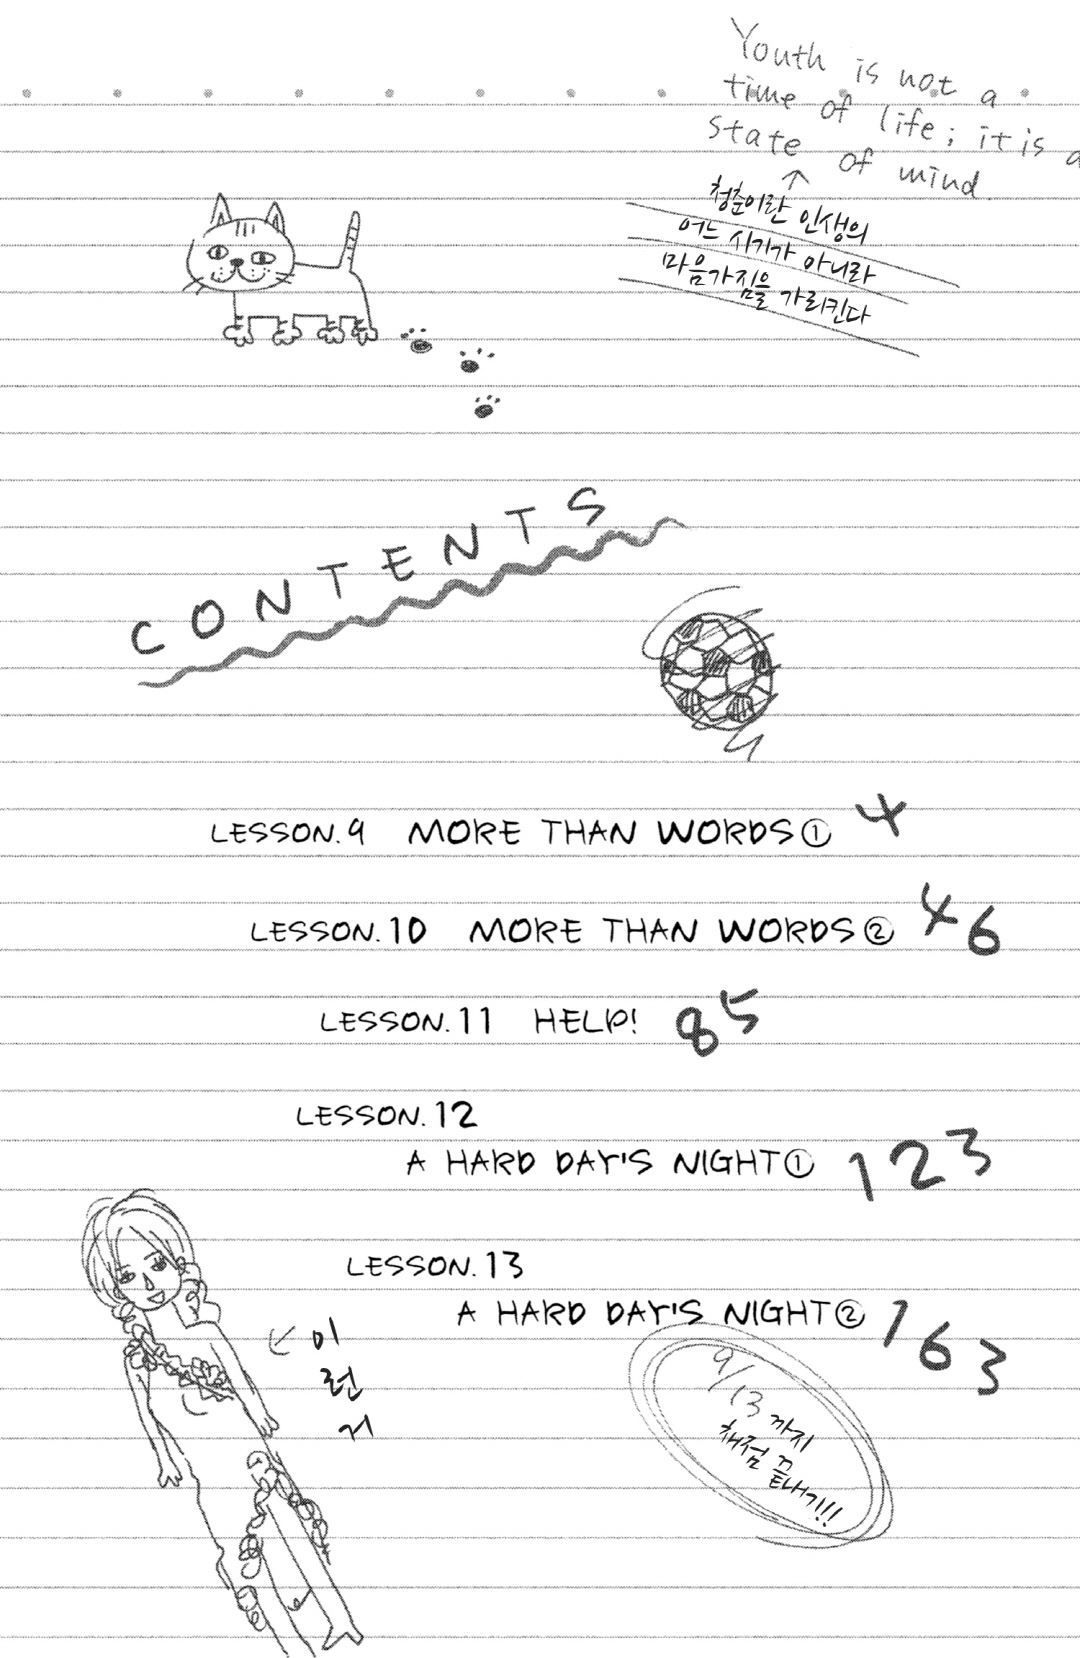 Youth is not a
time of life; it is a
state of mind
↑
청춘이란 인생의
어느 시기가 아니라
마음가짐을 가리킨다
CONTENTS
LESSON.9 MORE THAN WORDS① 4
LESSON.10 MORE THAN WORDS② 46
LESSON.11 HELP! 85
LESSON.12
A HARD DAY'S NIGHT① 123
LESSON.13
A HARD DAY'S NIGHT② 163
이
런
거
9/13까지
채점 끝내기!!!